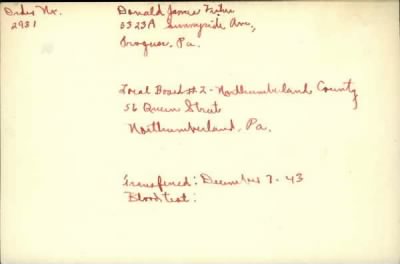 Order No.
2931
Donald James
5323A Sunnyside Ave.,
Pa.
Local Board #2 - Northumberland County
56 Queen Street
Northumberland, Pa.
Transferred: December 7-43
Blood test: